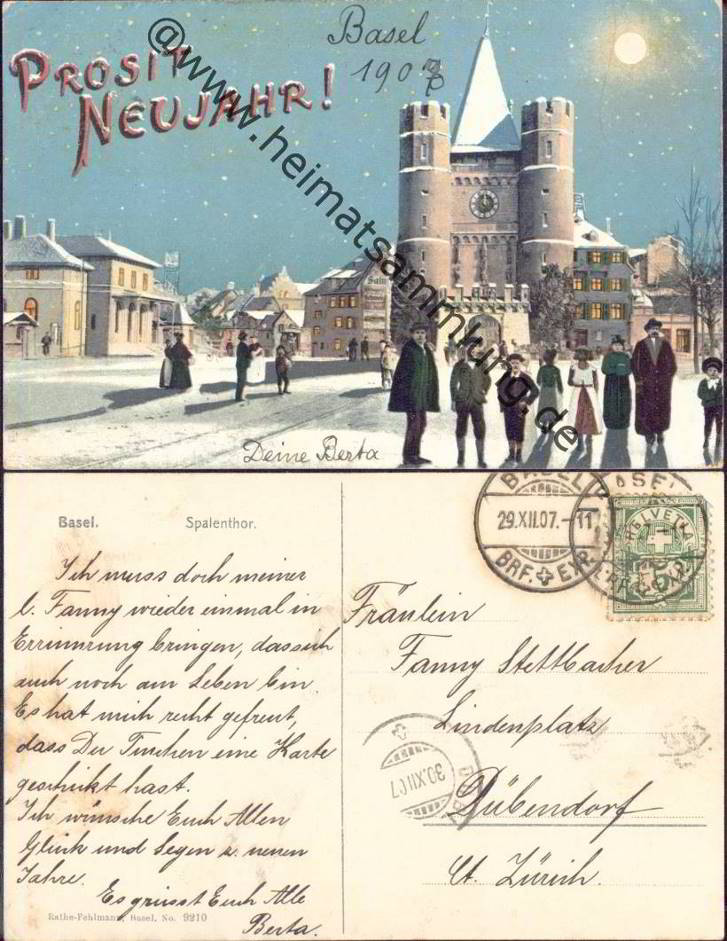 PROSIT
NEUJAHR!
Basel
1907
@www.heimatsammlung.de
Deine Berta
Basel. Spalenthor.
Ich muss doch meiner
l. Fanny wieder einmal in
Errinnrung bringen, dass ich
auch noch am Leben bin.
Es hat mich recht gefreut,
dass Du Tinchen eine Karte
geschickt hast.
Ich wünsche Euch Allen
Glück und Segen z. neuen
Jahre.
Es grüsst Euch Alle
Berta.
Rathe-Fehlmann, Basel, No. 9210
BASEL
29.XII.07.-11
BRF. EXP.
HELVETIA
Fräulein
Fanny Stettbacher
Lindenplatz
30.XII.07
Dübendorf
Ct. Zürich.